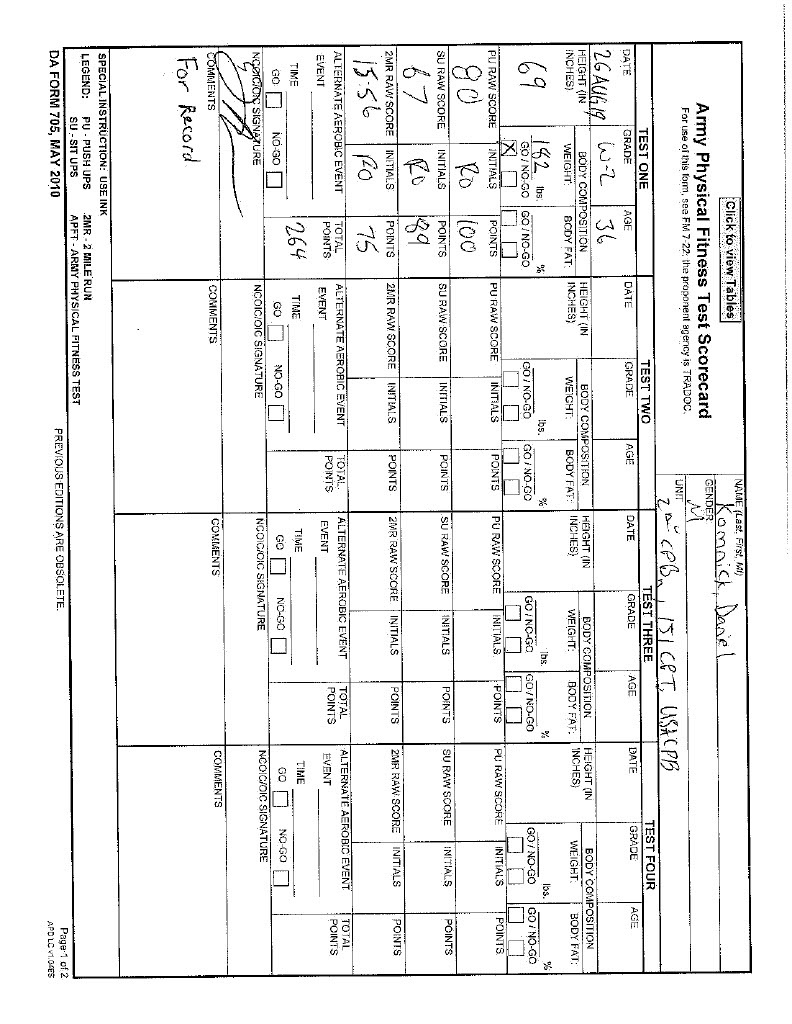 Click to view Tables
Army Physical Fitness Test Scorecard
For use of this form, see FM 7-22; the proponent agency is TRADOC.
NAME (Last, First, MI)
Komnick, Daniel
GENDER
M
UNIT
2nd CPBn, 151 CPT, USACPB
TEST ONE
DATE GRADE AGE
26AUG19 W-2 36
HEIGHT (IN INCHES)
69
BODY COMPOSITION
WEIGHT: BODY FAT:
182 lbs. %
GO / NO-GO GO / NO-GO
X
PU RAW SCORE INITIALS POINTS
80 RO 100
SU RAW SCORE INITIALS POINTS
67 RO 89
2MR RAW SCORE INITIALS POINTS
15:56 RO 75
ALTERNATE AEROBIC EVENT
EVENT
TIME
GO NO-GO
TOTAL POINTS
264
NCOIC/OIC SIGNATURE
COMMENTS
For Record
TEST TWO
DATE GRADE AGE
HEIGHT (IN INCHES)
BODY COMPOSITION
WEIGHT: BODY FAT:
lbs. %
GO / NO-GO GO / NO-GO
PU RAW SCORE INITIALS POINTS
SU RAW SCORE INITIALS POINTS
2MR RAW SCORE INITIALS POINTS
ALTERNATE AEROBIC EVENT
EVENT
TIME
GO NO-GO
TOTAL POINTS
NCOIC/OIC SIGNATURE
COMMENTS
TEST THREE
DATE GRADE AGE
HEIGHT (IN INCHES)
BODY COMPOSITION
WEIGHT: BODY FAT:
lbs. %
GO / NO-GO GO / NO-GO
PU RAW SCORE INITIALS POINTS
SU RAW SCORE INITIALS POINTS
2MR RAW SCORE INITIALS POINTS
ALTERNATE AEROBIC EVENT
EVENT
TIME
GO NO-GO
TOTAL POINTS
NCOIC/OIC SIGNATURE
COMMENTS
TEST FOUR
DATE GRADE AGE
HEIGHT (IN INCHES)
BODY COMPOSITION
WEIGHT: BODY FAT:
lbs. %
GO / NO-GO GO / NO-GO
PU RAW SCORE INITIALS POINTS
SU RAW SCORE INITIALS POINTS
2MR RAW SCORE INITIALS POINTS
ALTERNATE AEROBIC EVENT
EVENT
TIME
GO NO-GO
TOTAL POINTS
NCOIC/OIC SIGNATURE
COMMENTS
SPECIAL INSTRUCTION: USE INK
LEGEND: PU - PUSH UPS 2MR - 2 MILE RUN
SU - SIT UPS APFT - ARMY PHYSICAL FITNESS TEST
DA FORM 705, MAY 2010
PREVIOUS EDITIONS ARE OBSOLETE.
Page 1 of 2
APD LC v1.04ES